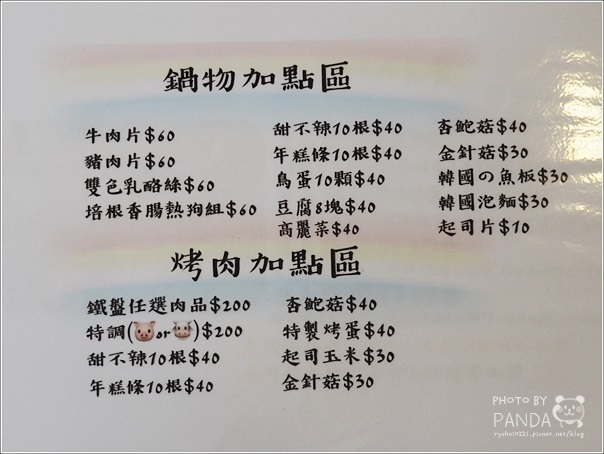 鍋物加點區
牛肉片$60
豬肉片$60
雙色乳酪絲$60
培根香腸熱狗組$60
甜不辣10根$40
年糕條10根$40
鳥蛋10顆$40
豆腐8塊$40
高麗菜$40
杏鮑菇$40
金針菇$30
韓國の魚板$30
韓國泡麵$30
起司片$10
烤肉加點區
鐵盤任選肉品$200
特調(🐷or🐮)$200
甜不辣10根$40
年糕條10根$40
杏鮑菇$40
特製烤蛋$40
起司玉米$30
金針菇$30
PHOTO BY
PANDA
ryoko19221.pixnet.net/blog